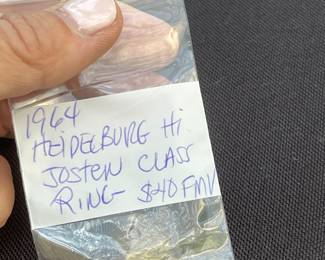 1964
HEIDELBURG Hi
JOSTEN CLASS
RING- $40 FMV